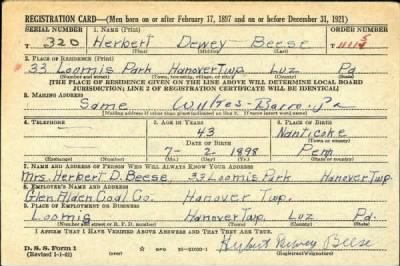 REGISTRATION CARD—(Men born on or after February 17, 1897 and on or before December 31, 1921)
SERIAL NUMBER 1. NAME (Print) ORDER NUMBER
T 320 Herbert Dewey Beese
(First) (Middle) (Last)
2. PLACE OF RESIDENCE (Print)
33 Loomis Park Hanover Twp. Luz Pa
(Number and street) (Town, township, village, or city) (County) (State)
[THE PLACE OF RESIDENCE GIVEN ON THE LINE ABOVE WILL DETERMINE LOCAL BOARD
JURISDICTION; LINE 2 OF REGISTRATION CERTIFICATE WILL BE IDENTICAL]
3. MAILING ADDRESS
Same Wilkes-Barre, Pa
[Mailing address if other than place indicated on line 2. If same insert word same]
4. TELEPHONE 5. AGE IN YEARS 6. PLACE OF BIRTH
43 Nanticoke
DATE OF BIRTH (Town or county)
7-2-1898 Penn
(Exchange) (Number) (Mo.) (Day) (Yr.) (State or country)
7. NAME AND ADDRESS OF PERSON WHO WILL ALWAYS KNOW YOUR ADDRESS
Mrs. Herbert D. Beese 33 Loomis Park Hanover Twp
8. EMPLOYER'S NAME AND ADDRESS
Glen Alden Coal Co. Hanover Twp.
9. PLACE OF EMPLOYMENT OR BUSINESS
Loomis Hanover Twp. Luz Pa.
(Number and street or R. F. D. number) (Town) (County) (State)
I AFFIRM THAT I HAVE VERIFIED ABOVE ANSWERS AND THAT THEY ARE TRUE.
D. S. S. Form 1
(Revised 1-1-42) GPO 16—21630-1 Herbert Dewey Beese
(Registrant's signature)